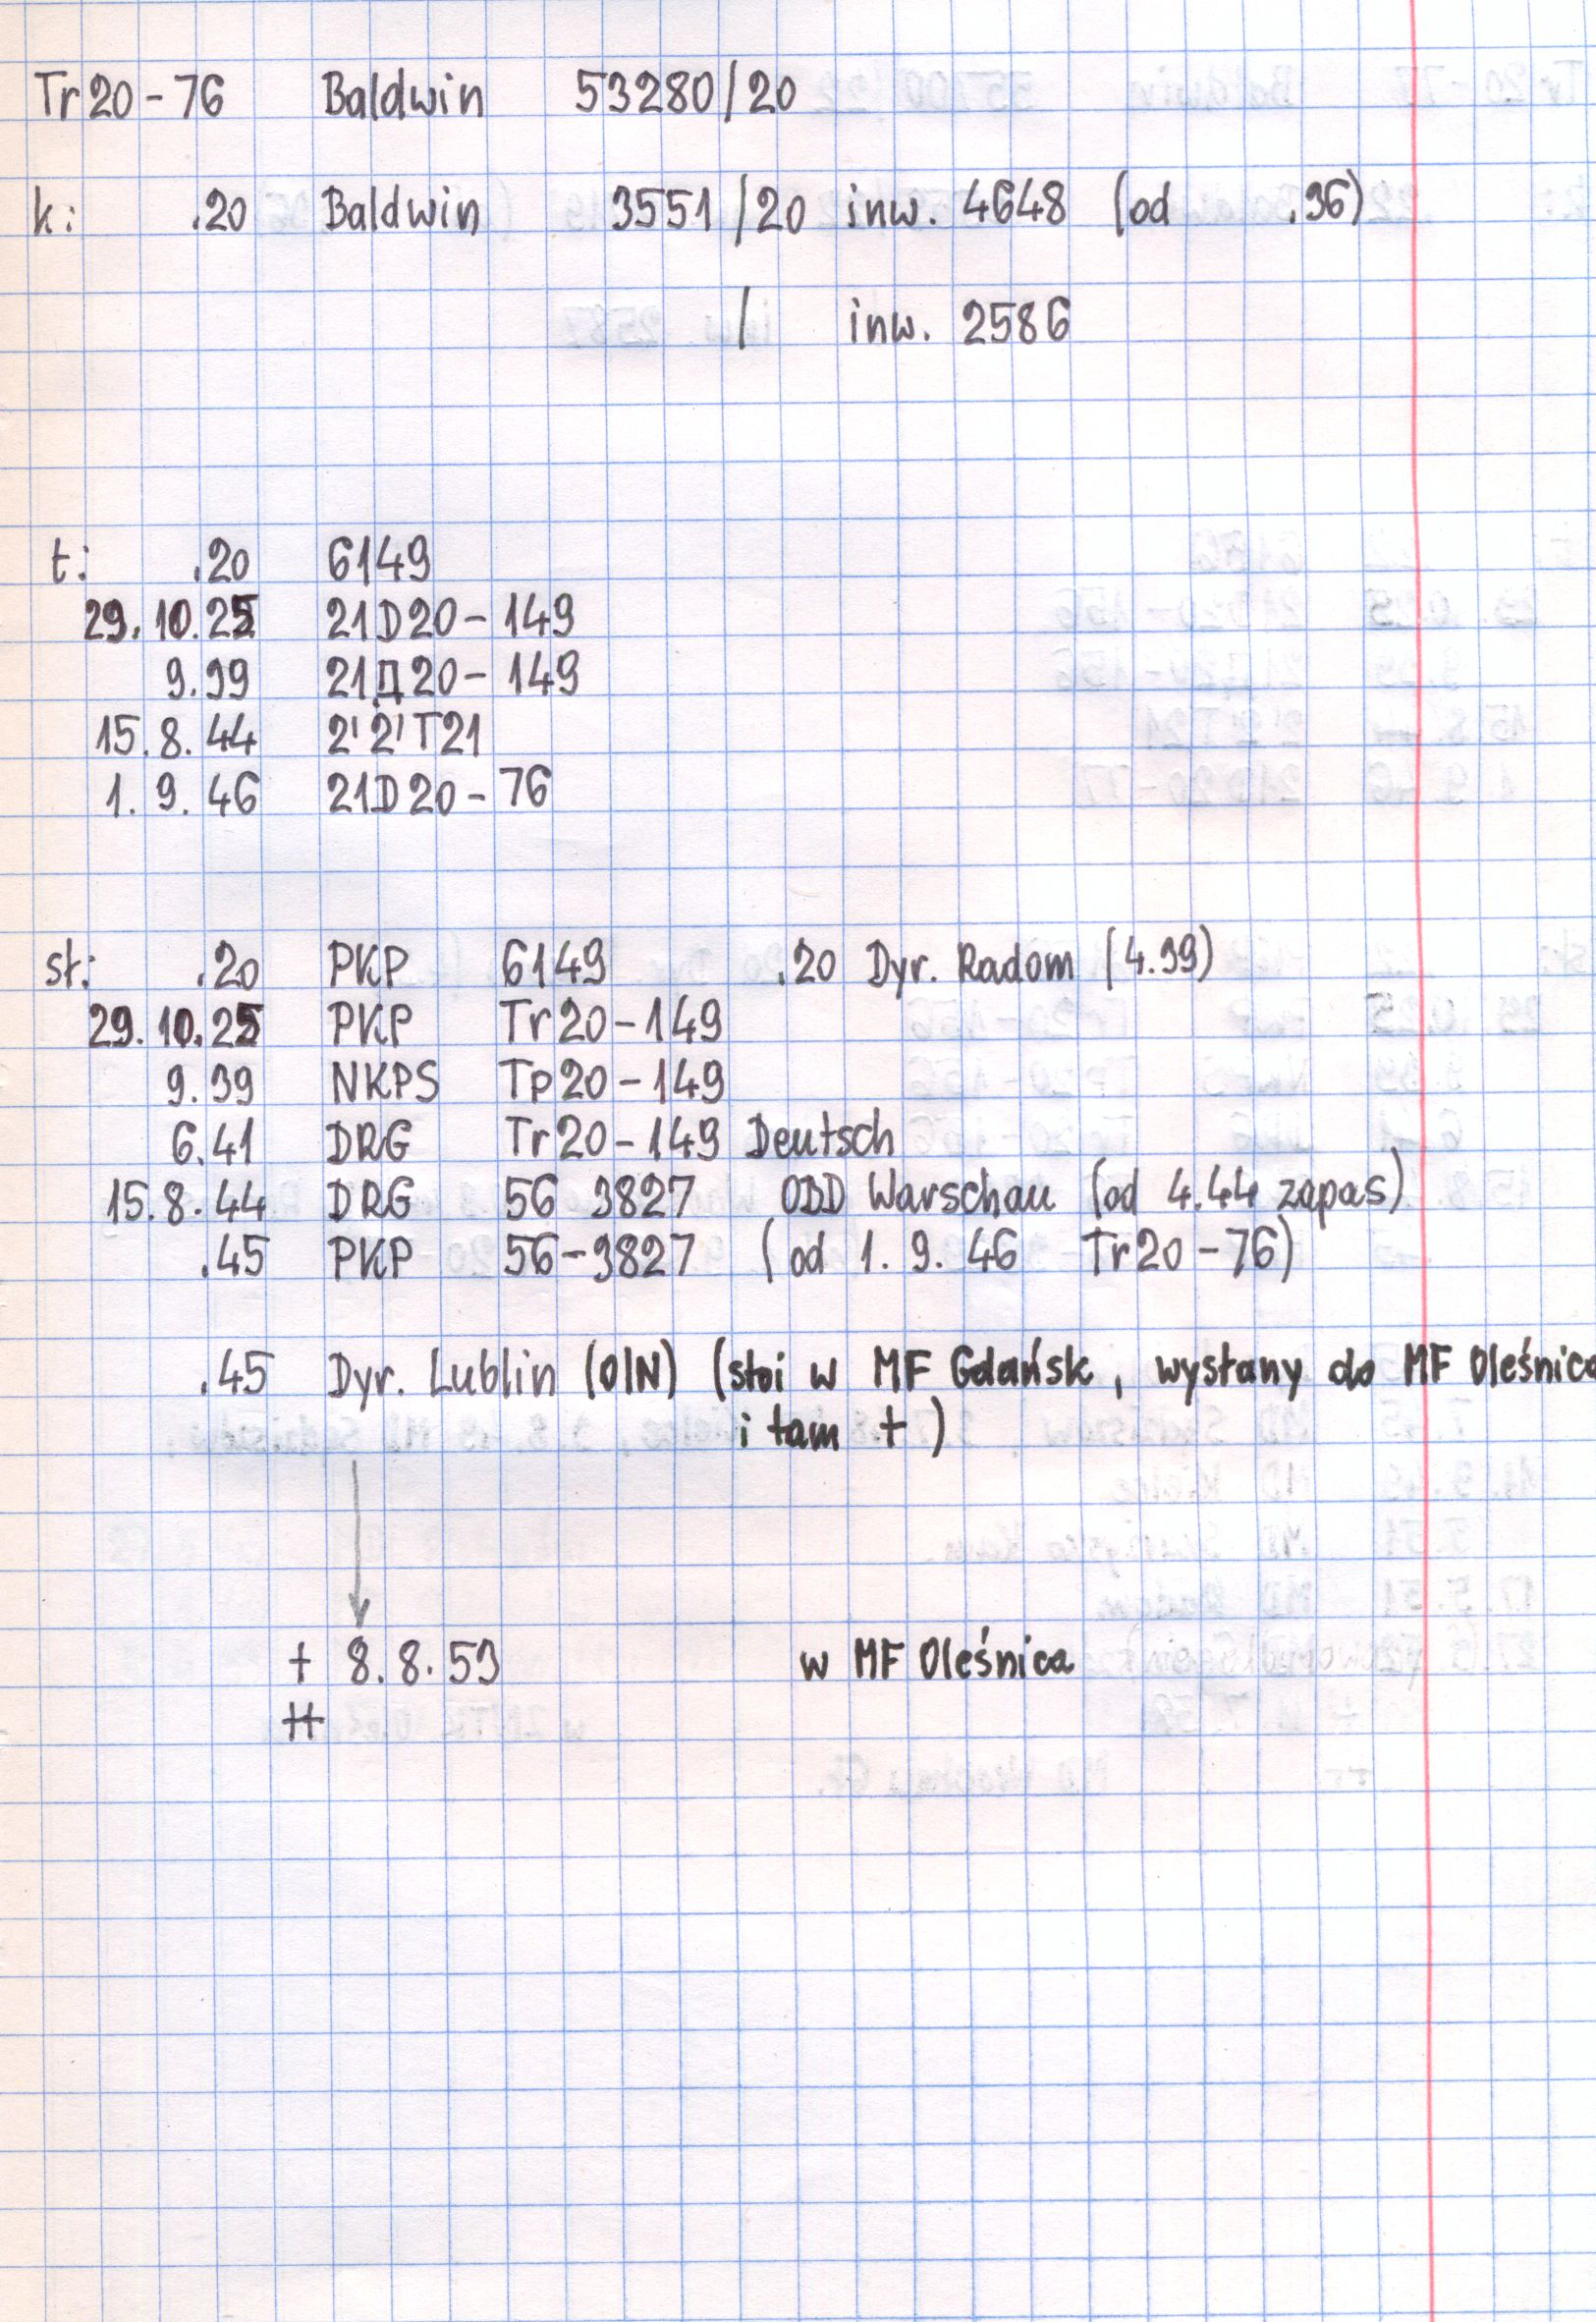 Tr20-76 Baldwin 53280/20
k: .20 Baldwin 3551/20 inw. 4648 (od .36)
/ inw. 2586
t: .20 6149
29.10.25 21D20-149
9.39 21Д20-149
15.8.44 2'2'T21
1.9.46 21D20-76
st: .20 PKP 6149 .20 Dyr. Radom (4.39)
29.10.25 PKP Tr20-149
9.39 NKPS Tp20-149
6.41 DRG Tr20-149 Deutsch
15.8.44 DRG 56 3827 OBD Warschau (od 4.44 zapas)
.45 PKP 56-3827 (od 1.9.46 Tr20-76)
.45 Dyr. Lublin (OlN) (stoi w MF Gdańsk, wysłany do MF Oleśnica
i tam +)
+ 8.8.53 w MF Oleśnica
++